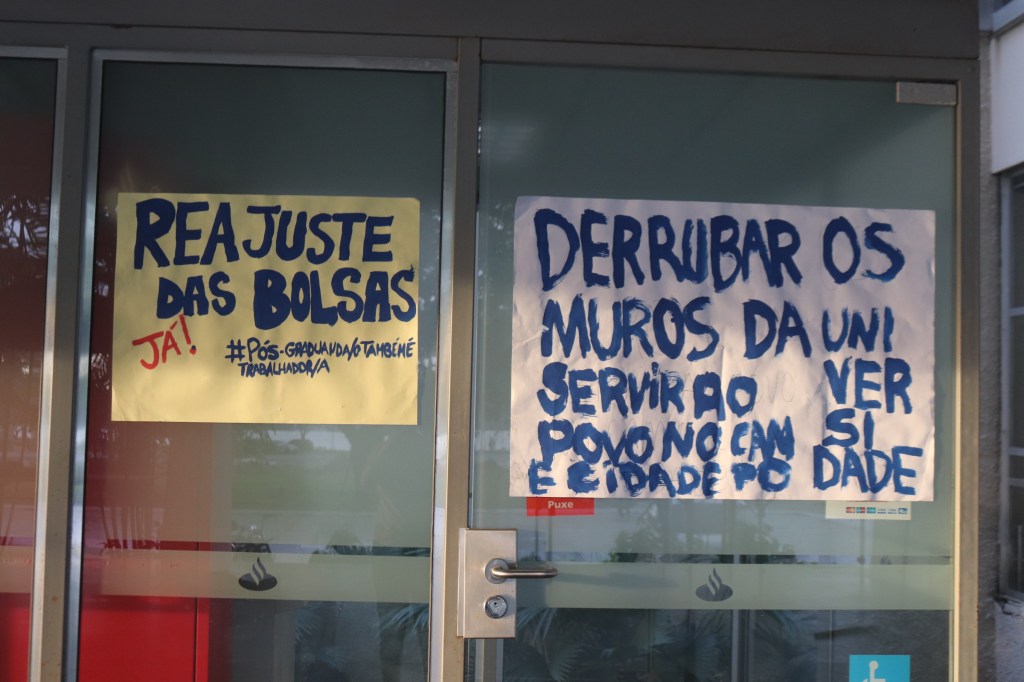 REAJUSTE
DAS BOLSAS
JÁ!
#PÓS-GRADUANDA/O TAMBÉM É
TRABALHADOR/A
DERRUBAR OS
MUROS DA UNI
SERVIR AO VER
POVO NO CAM SI
E CIDADE PO DADE
Puxe